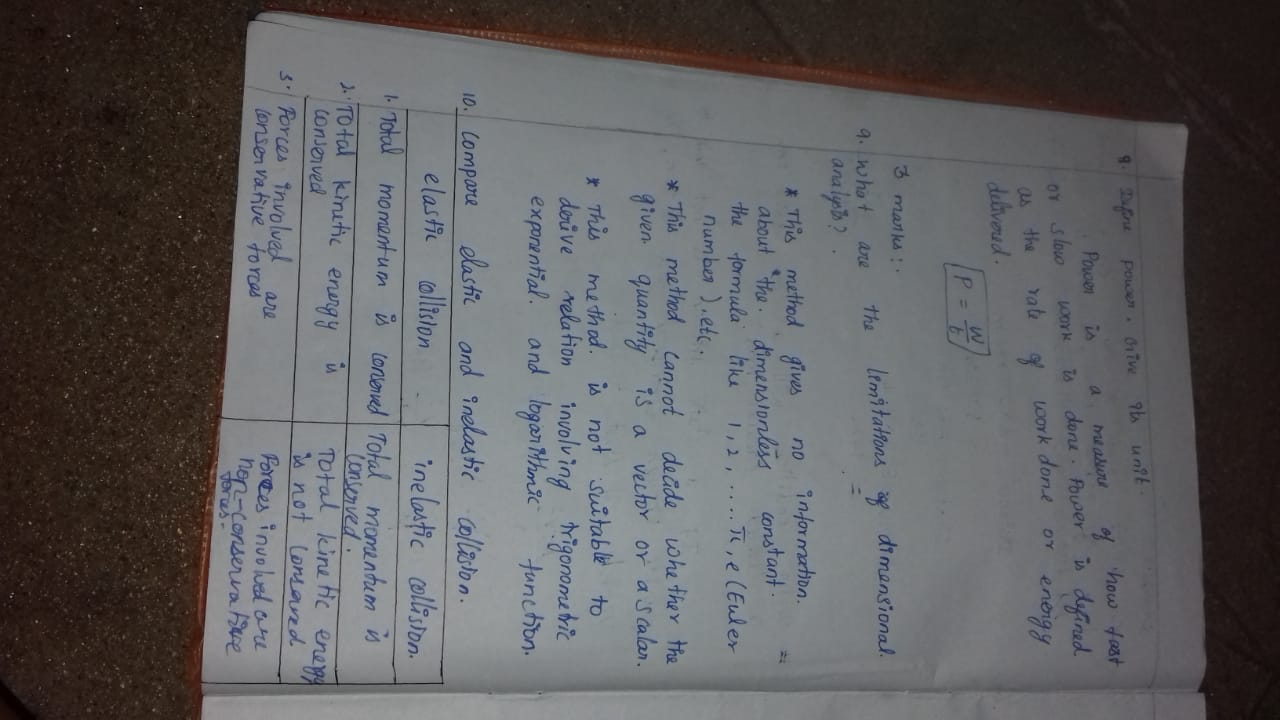 8. Define power. Give its unit.
Power is a measure of how fast
or slow work is done. Power is defined
as the rate of work done or energy
delivered.
P = W/t
3 marks:
9. What are the limitations of dimensional
analysis?
* This method gives no information
about the dimensionless constant
the formula like 1, 2, ..... π, e (Euler
number) etc.
* This method cannot decide whether the
given quantity is a vector or a scalar.
* This method is not suitable to
derive relation involving trigonometric
exponential and logarithmic function.
10. Compare elastic and inelastic collision.
elastic collision inelastic collision.
1. Total momentum is conserved Total momentum is
conserved.
2. Total kinetic energy is Total kinetic energy
conserved is not conserved
3. Forces involved are Forces involved are
conservative forces non-conservative
forces.